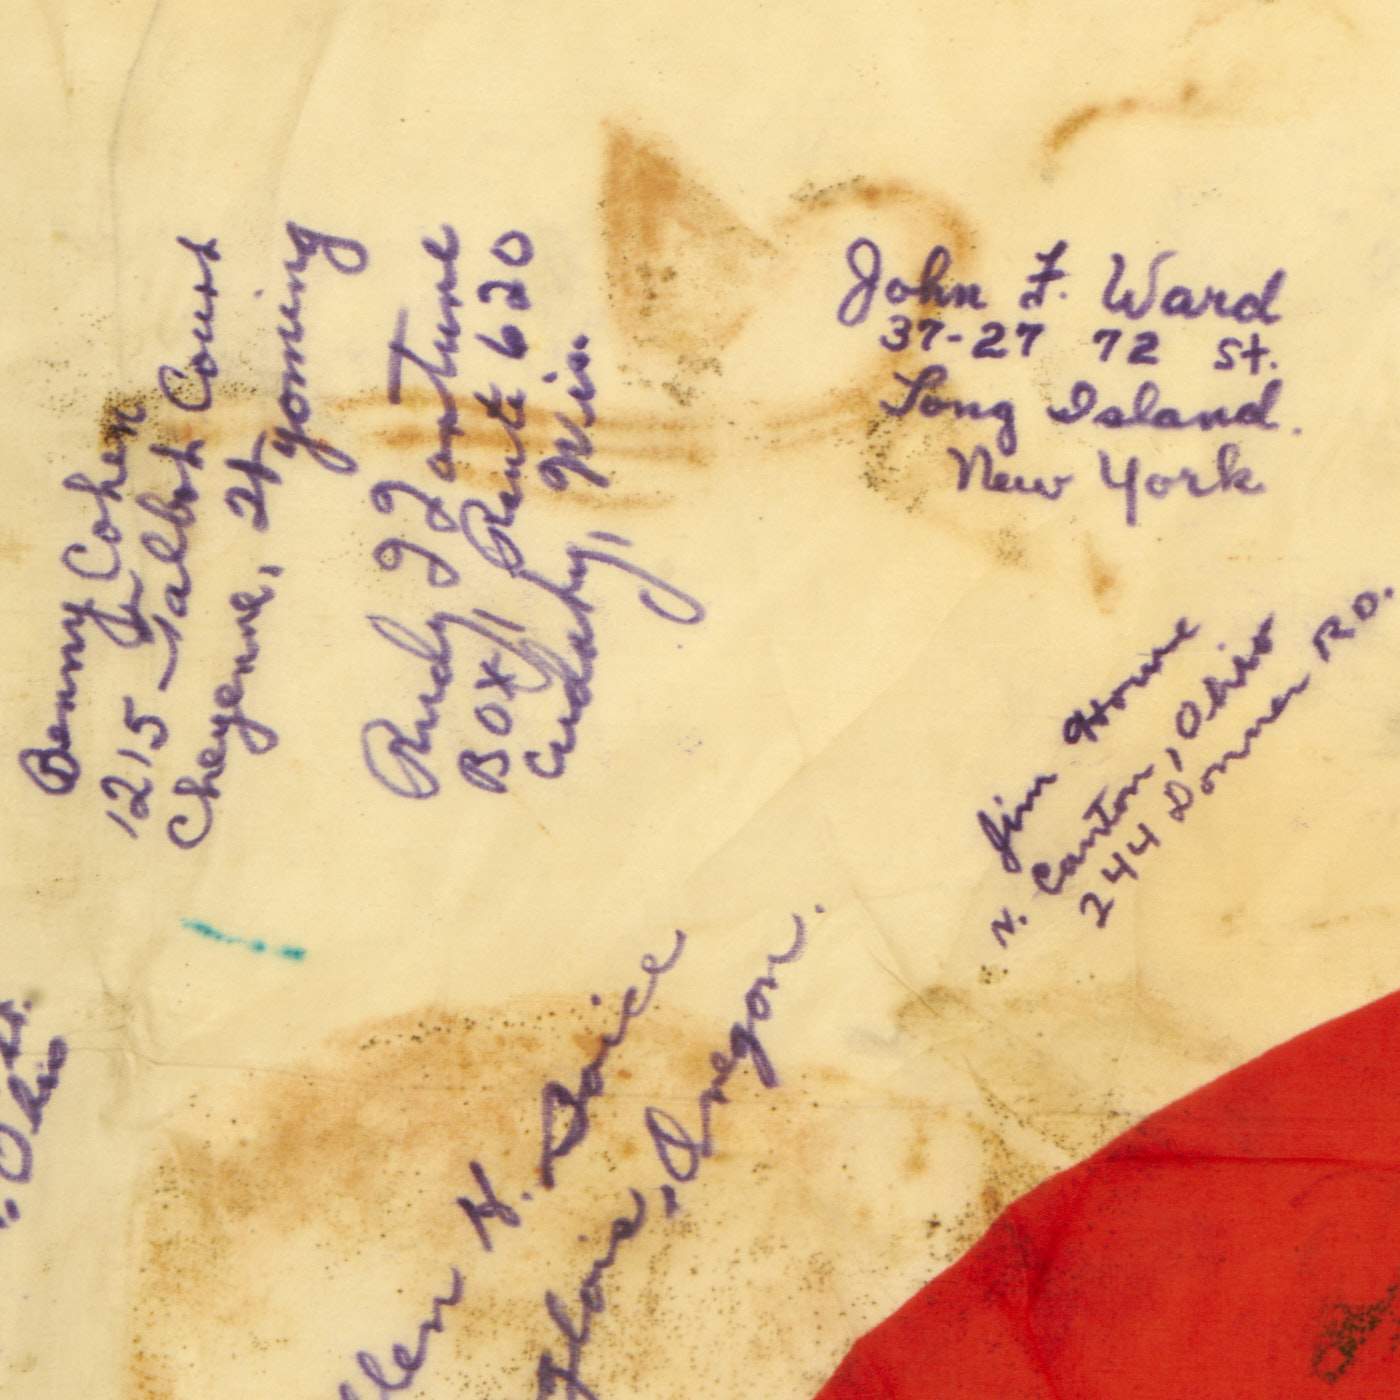 Benny Cohen
1215 Talbot Court
Cheyenne, Wyoming
Rudy J. Fortune
BOX, Route 620
Cudahy, Wis
John F. Ward
37-27 72 St.
Long Island.
New York
Jim Howe
N. Canton, Ohio
244 Donner RD.
H. Boice
Oregon.
Ohio